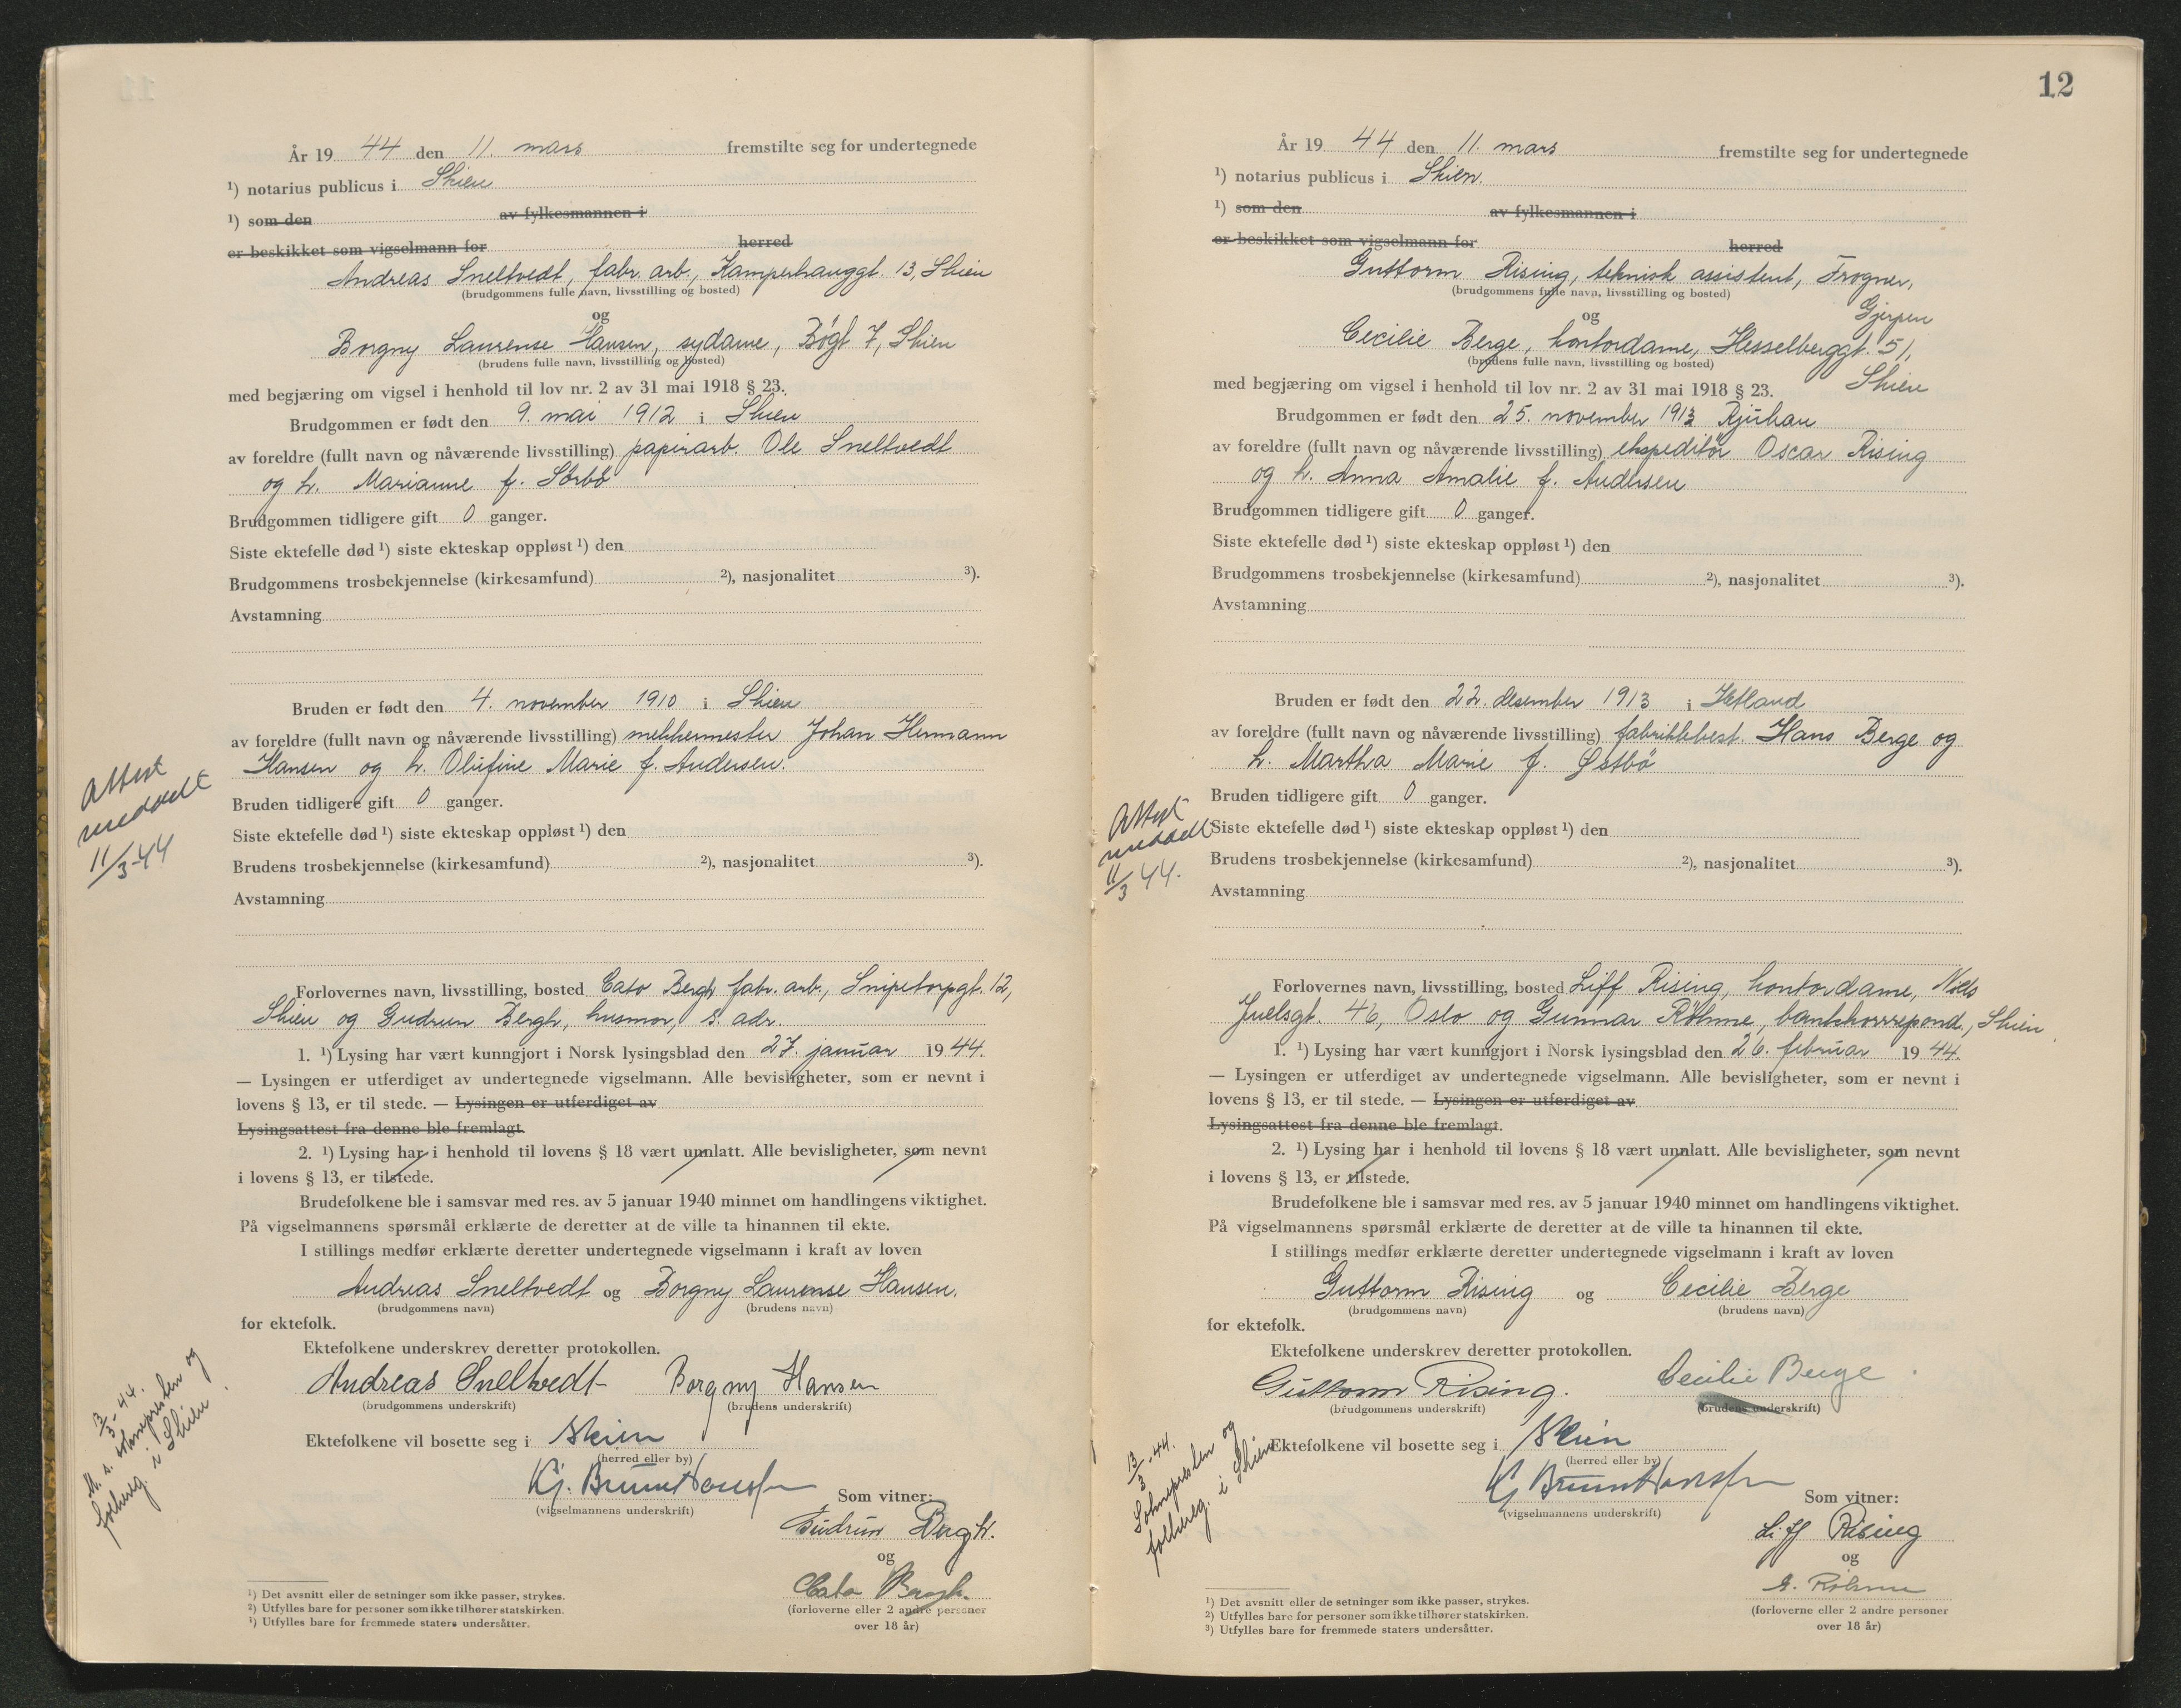 År 19 44 den 11. mars fremstilte seg for undertegnede
¹) notarius publicus i Skien
¹) som den av fylkesmannen i
er beskikket som vigselmann for herred
Andreas Sneltvedt, fabr. arb., Kamperhauggt. 13, Skien
(brudgommens fulle navn, livsstilling og bosted)
og
Borgny Laurense Hansen, sydame, Bøgt 7, Skien
(brudens fulle navn, livsstilling og bosted)
med begjæring om vigsel i henhold til lov nr. 2 av 31 mai 1918 § 23.
Brudgommen er født den 9. mai 1912 i Skien
av foreldre (fullt navn og nåværende livsstilling) papirarb. Ole Sneltvedt
og h. Marianne f. Sørbø
Brudgommen tidligere gift 0 ganger.
Siste ektefelle død ¹) siste ekteskap oppløst ¹) den
Brudgommens trosbekjennelse (kirkesamfund) ²), nasjonalitet ³).
Avstamning
Bruden er født den 4. november 1910 i Skien
av foreldre (fullt navn og nåværende livsstilling) mekkermester Johan Hermann
Hansen og h. Olufine Marie f. Andersen.
Bruden tidligere gift 0 ganger.
Siste ektefelle død ¹) siste ekteskap oppløst ¹) den
Brudens trosbekjennelse (kirkesamfund) ²), nasjonalitet ³).
Avstamning
Attest
meddelt
11/3-44
Forlovernes navn, livsstilling, bosted Cato Bergh fabr. arb., Snipetorpgt. 12,
Skien og Gudrun Bergh, husmor, s. adr.
1. ¹) Lysing har vært kunngjort i Norsk lysingsblad den 27. januar 1944.
— Lysingen er utferdiget av undertegnede vigselmann. Alle bevisligheter, som er nevnt i
lovens § 13, er til stede. — Lysingen er utferdiget av
Lysingsattest fra denne ble fremlagt.
2. ¹) Lysing har i henhold til lovens § 18 vært unnlatt. Alle bevisligheter, som nevnt
i lovens § 13, er tilstede.
Brudefolkene ble i samsvar med res. av 5 januar 1940 minnet om handlingens viktighet.
På vigselmannens spørsmål erklærte de deretter at de ville ta hinannen til ekte.
I stillings medfør erklærte deretter undertegnede vigselmann i kraft av loven
Andreas Sneltvedt og Borgny Laurense Hansen.
(brudgommens navn) (brudens navn)
for ektefolk.
Ektefolkene underskrev deretter protokollen.
Andreas Sneltvedt Borgny Hansen
(brudgommens underskrift) (brudens underskrift)
Ektefolkene vil bosette seg i Skien
(herred eller by)
Kj. Bruun Hanssen
(vigselmannens underskrift)
Som vitner:
Gudrun Bergh.
og
Cato Bergh.
(forloverne eller 2 andre personer
over 18 år)
13/3-44.
M. s. soknepresten og
folkereg. i Skien.
¹) Det avsnitt eller de setninger som ikke passer, strykes.
²) Utfylles bare for personer som ikke tilhører statskirken.
³) Utfylles bare for fremmede staters undersåtter.
12
År 19 44 den 11. mars fremstilte seg for undertegnede
¹) notarius publicus i Skien.
¹) som den av fylkesmannen i
er beskikket som vigselmann for herred
Guttorm Rising, teknisk assistent, Frogner,
(brudgommens fulle navn, livsstilling og bosted)
Gjerpen
og
Cecilie Berge, kontordame, Hesselberggt. 51,
(brudens fulle navn, livsstilling og bosted)
Skien
med begjæring om vigsel i henhold til lov nr. 2 av 31 mai 1918 § 23.
Brudgommen er født den 25. november 1913 Rjukan
av foreldre (fullt navn og nåværende livsstilling) ekspeditör Oscar Rising
og h. Anna Amalie f. Andersen
Brudgommen tidligere gift 0 ganger.
Siste ektefelle død ¹) siste ekteskap oppløst ¹) den
Brudgommens trosbekjennelse (kirkesamfund) ²), nasjonalitet ³).
Avstamning
Bruden er født den 22. desember 1913 i Hetland
av foreldre (fullt navn og nåværende livsstilling) fabrikkbest. Hans Berge og
h. Martha Marie f. Østbö
Bruden tidligere gift 0 ganger.
Siste ektefelle død ¹) siste ekteskap oppløst ¹) den
Brudens trosbekjennelse (kirkesamfund) ²), nasjonalitet ³).
Avstamning
Attest
meddelt
11/3 44.
Forlovernes navn, livsstilling, bosted Liff Rising, kontordame, Niels
Juelsgt. 46, Oslo og Gunnar Röhme, bankkorrespond., Skien.
1. ¹) Lysing har vært kunngjort i Norsk lysingsblad den 26. februar 1944.
— Lysingen er utferdiget av undertegnede vigselmann. Alle bevisligheter, som er nevnt i
lovens § 13, er til stede. — Lysingen er utferdiget av
Lysingsattest fra denne ble fremlagt.
2. ¹) Lysing har i henhold til lovens § 18 vært unnlatt. Alle bevisligheter, som nevnt
i lovens § 13, er tilstede.
Brudefolkene ble i samsvar med res. av 5 januar 1940 minnet om handlingens viktighet.
På vigselmannens spørsmål erklærte de deretter at de ville ta hinannen til ekte.
I stillings medfør erklærte deretter undertegnede vigselmann i kraft av loven
Guttorm Rising og Cecilie Berge
(brudgommens navn) (brudens navn)
for ektefolk.
Ektefolkene underskrev deretter protokollen.
Guttorm Rising. Cecilie Berge
(brudgommens underskrift) (brudens underskrift)
Ektefolkene vil bosette seg i Skien
(herred eller by)
Kj Bruun Hanssen
(vigselmannens underskrift)
Som vitner:
Liff Rising
og
G. Röhme
(forloverne eller 2 andre personer
over 18 år)
13/3-44.
Soknepresten og
folkereg. i Skien
¹) Det avsnitt eller de setninger som ikke passer, strykes.
²) Utfylles bare for personer som ikke tilhører statskirken.
³) Utfylles bare for fremmede staters undersåtter.